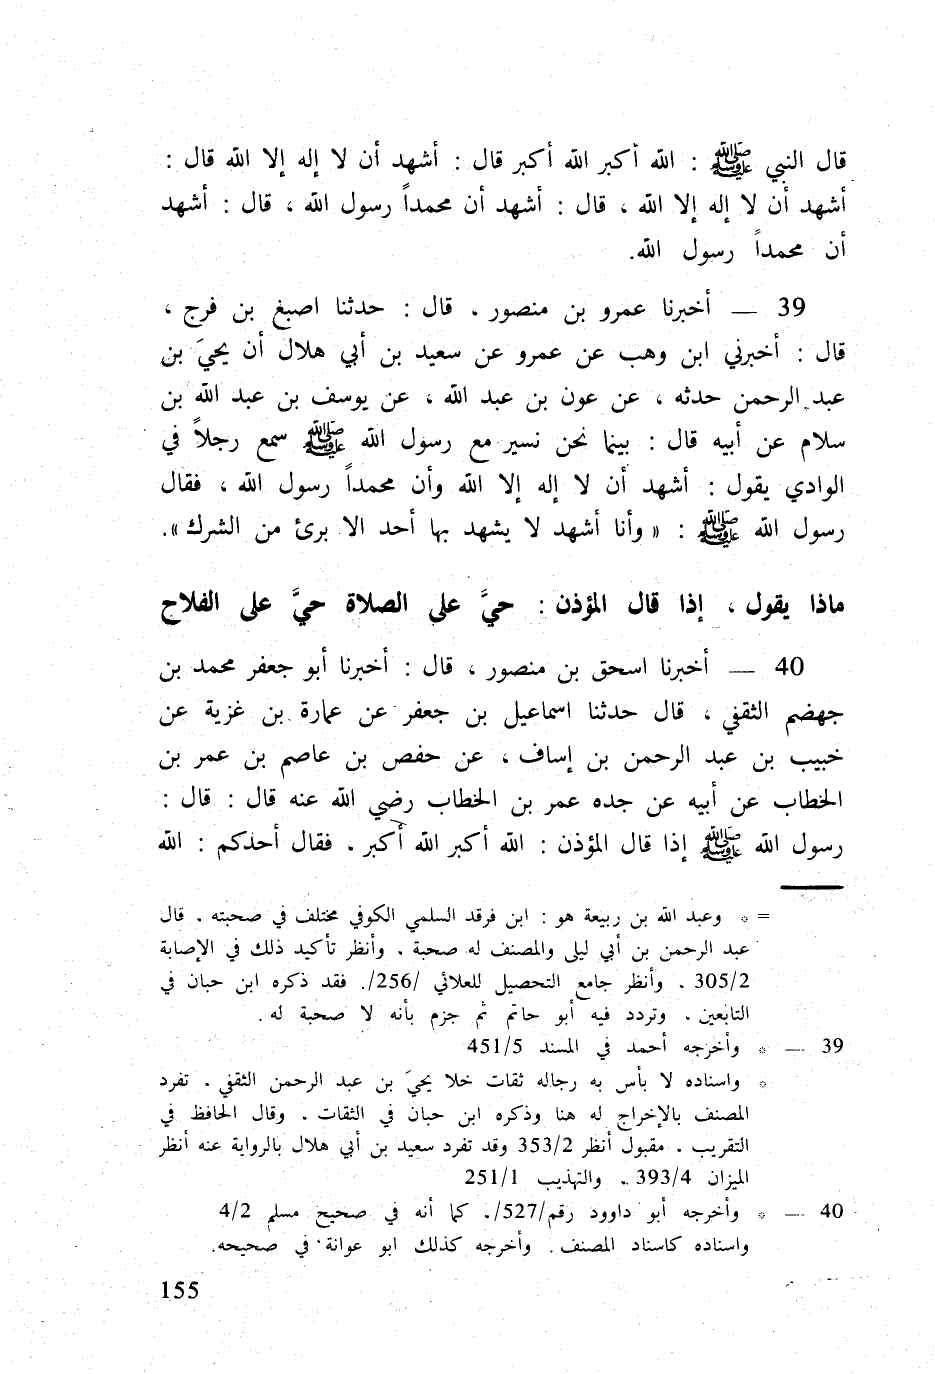 قال النبي ﷺ : الله أكبر الله أكبر قال : أشهد أن لا إله إلا الله قال :
أشهد أن لا إله إلا الله ، قال : أشهد أن محمداً رسول الله ، قال : أشهد
أن محمداً رسول الله.
39 — أخبرنا عمرو بن منصور . قال : حدثنا اصبغ بن فرج ،
قال : أخبرني ابن وهب عن عمرو عن سعيد بن أبي هلال أن يحيَ بن
عبد الرحمن حدثه ، عن عون بن عبد الله ، عن يوسف بن عبد الله بن
سلام عن أبيه قال : بينما نحن نسير مع رسول الله ﷺ سمع رجلاً في
الوادي يقول : أشهد أن لا إله إلا الله وأن محمداً رسول الله ، فقال
رسول الله ﷺ : « وأنا أشهد لا يشهد بها أحد الا برئ من الشرك».
ماذا يقول ، إذا قال المؤذن : حيَّ على الصلاة حيَّ على الفلاح
40 — أخبرنا اسحق بن منصور ، قال : أخبرنا أبو جعفر محمد بن
جهضم الثقفي ، قال حدثنا اسماعيل بن جعفر عن عمارة بن غزية عن
خبيب بن عبد الرحمن بن إساف ، عن حفص بن عاصم بن عمر بن
الخطاب عن أبيه عن جده عمر بن الخطاب رضي الله عنه قال : قال :
رسول الله ﷺ إذا قال المؤذن : الله أكبر الله أكبر . فقال أحدكم : الله
= * وعبد الله بن ربيعة هو : ابن فرقد السلمي الكوفي مختلف في صحبته . قال
عبد الرحمن بن أبي ليلى والمصنف له صحبة . وأنظر تأكيد ذلك في الإصابة
305/2 . وأنظر جامع التحصيل للعلائي /256/. فقد ذكره ابن حبان في
التابعين . وتردد فيه أبو حاتم ثم جزم بأنه لا صحبة له .
39 — * وأخرجه أحمد في المسند 451/5
* واسناده لا بأس به رجاله ثقات خلا يحيَ بن عبد الرحمن الثقفي . تفرد
المصنف بالإخراج له هنا وذكره ابن حبان في الثقات . وقال الحافظ في
التقريب . مقبول أنظر 353/2 وقد تفرد سعيد بن أبي هلال بالرواية عنه أنظر
الميزان 393/4 . والتهذيب 251/1
40 — * وأخرجه أبو داوود رقم/527/. كما أنه في صحيح مسلم 4/2
واسناده كاسناد المصنف . وأخرجه كذلك ابو عوانة في صحيحه.
155